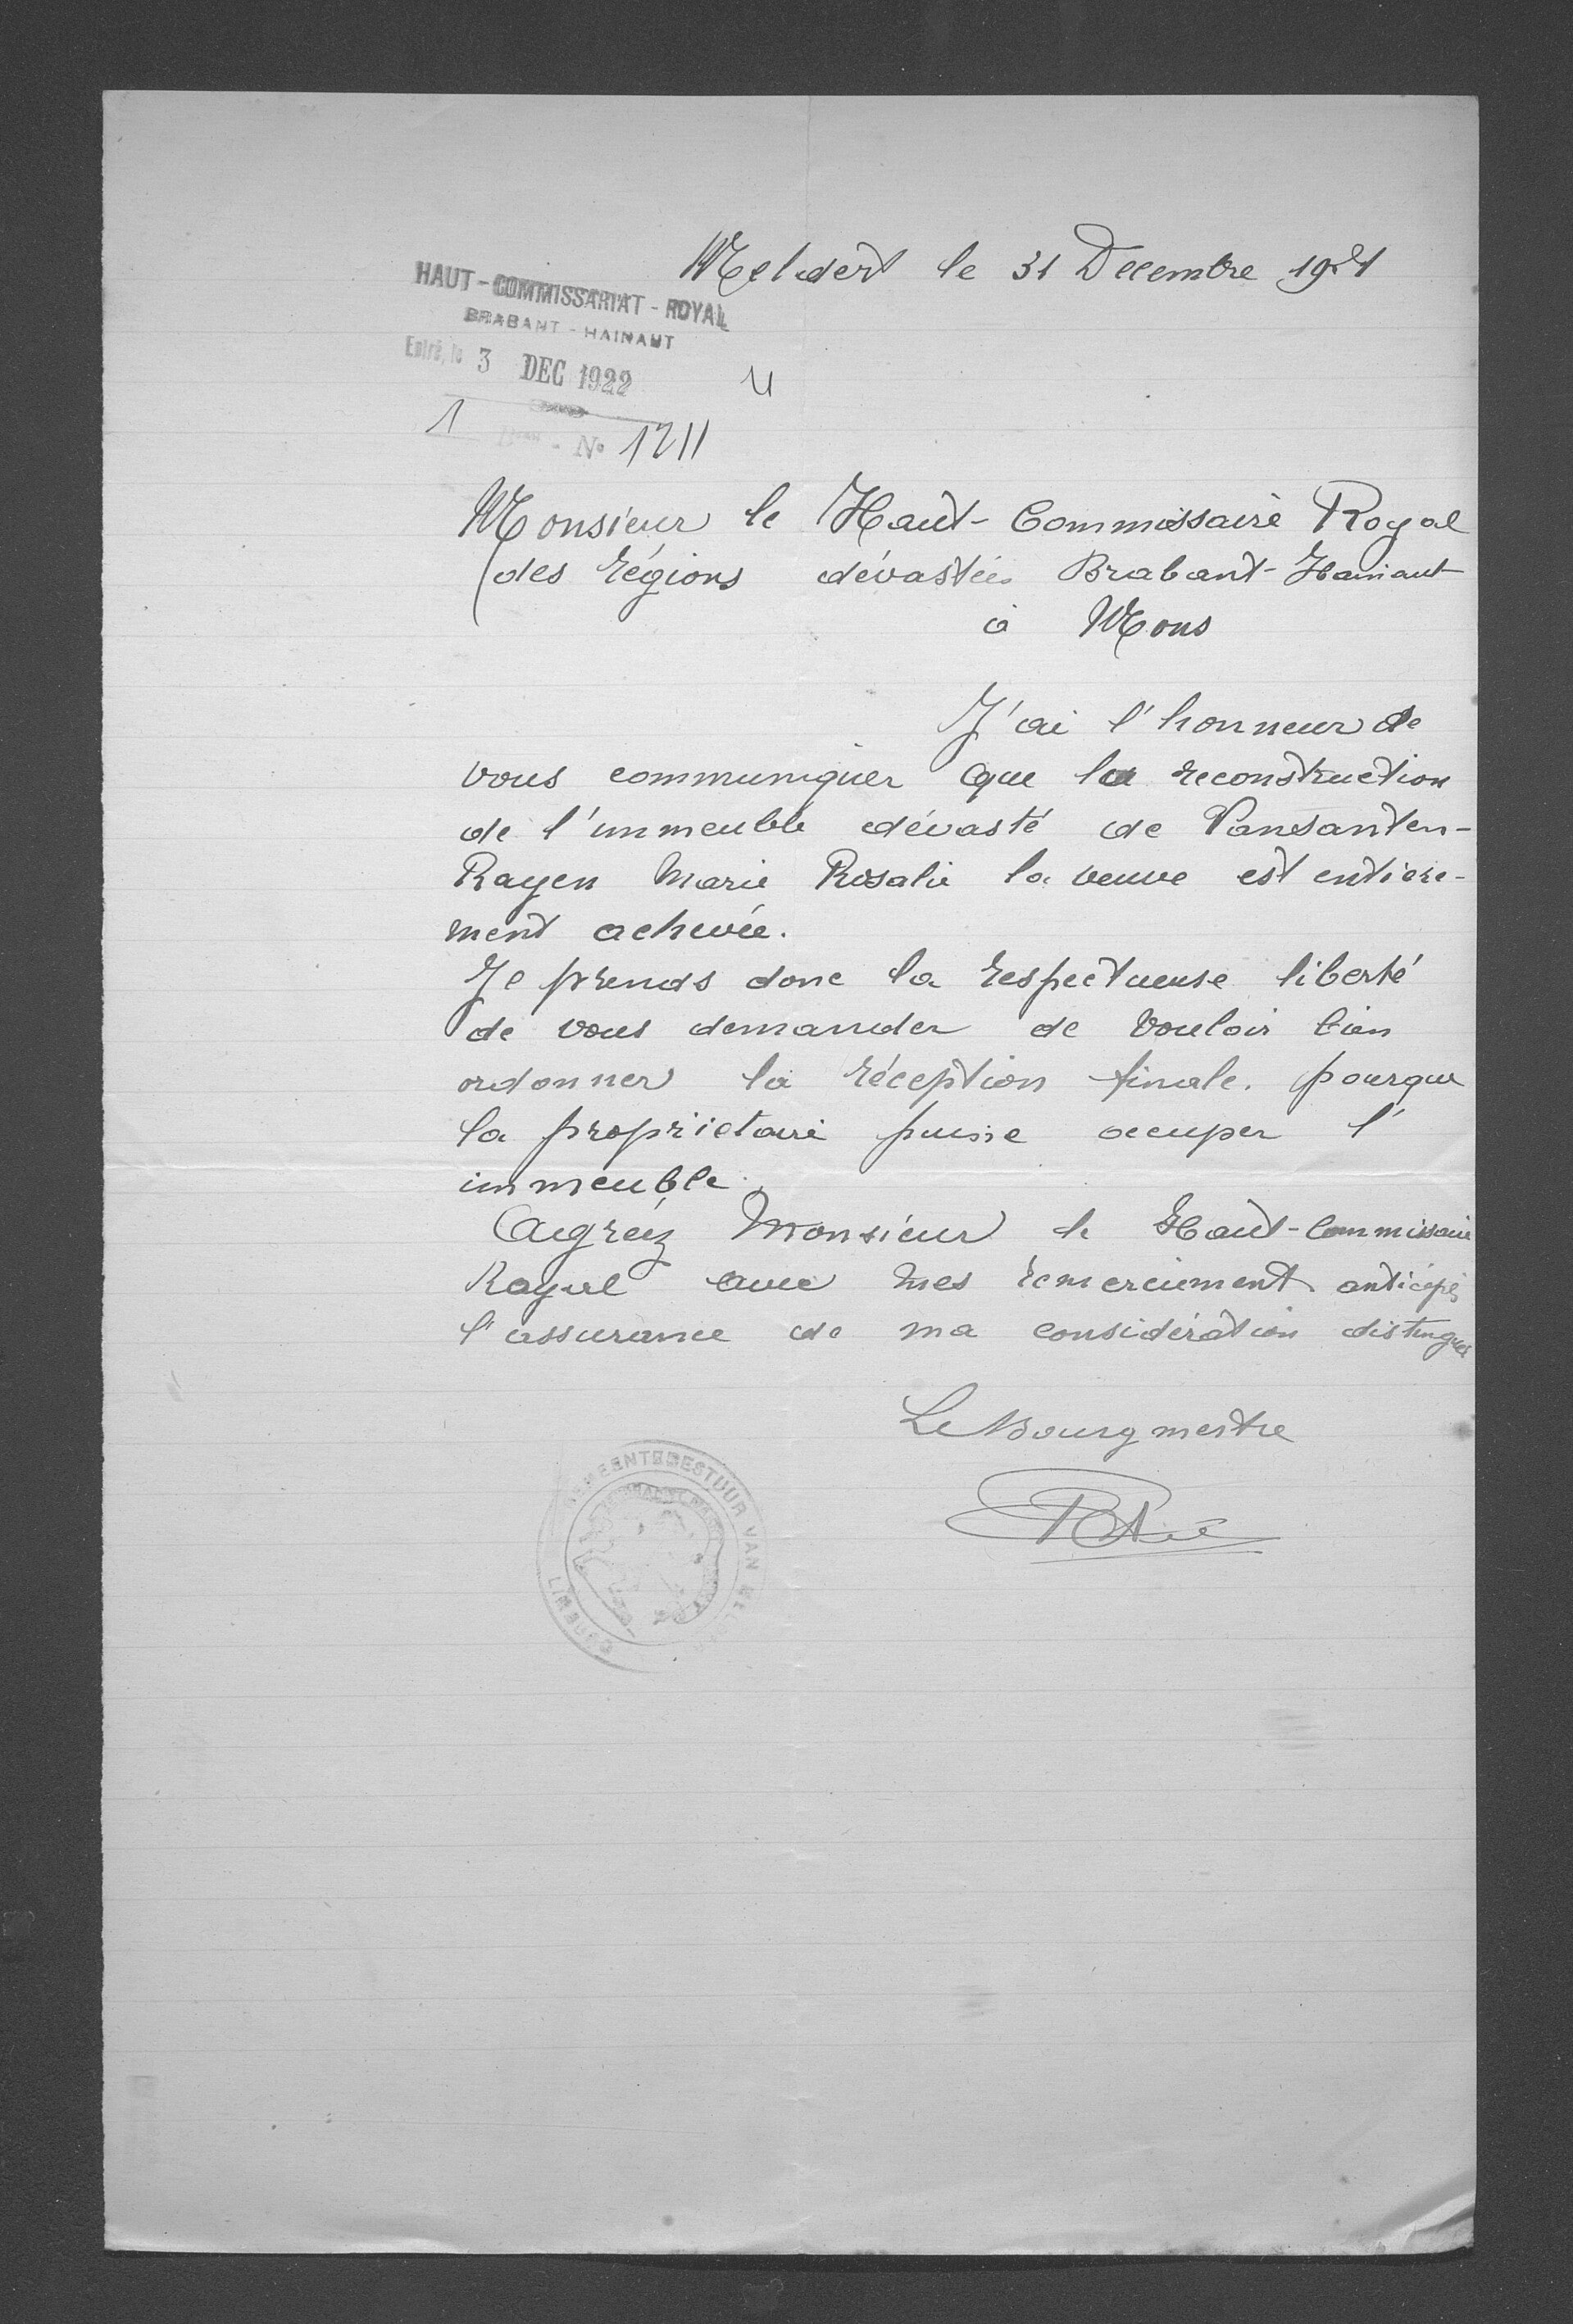 Meldert le 31 Decembre 1921
HAUT-COMMISSARIAT-ROYAL
BRABANT-HAINAUT
Entré, le 3 DEC 1922
1 Bau - No 1211
Monsieur le Haut-Commissaire Royal
des régions dévastées Brabant-Hainaut
à Mons
J'ai l'honneur de
vous communiquer que la reconstruction
de l'immeuble dévasté de Vansanten-
Rayen Marie Rosalie la veuve est entière-
ment achevée.
Je prends donc la respectueuse liberté
de vous demander de vouloir bien
ordonner la réception finale. pourque
la proprietaire puisse occuper l'
immeuble.
Agréez Monsieur le Haut-Commissaire
Royal avec mes remerciement anticipés
l'assurance de ma considération distinguée
Le Bourgmestre
GEMEENTEBESTUUR VAN MELDERT
LIMBURG